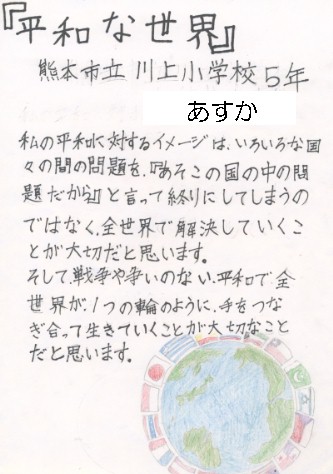 『平和な世界』
熊本市立 川上小学校5年
あすか
私の平和に対するイメージは、いろいろな国
々の間の問題を、『あそこの国の中の問
題だから』と言って終りにしてしまうの
ではなく、全世界で解決していくこ
とが大切だと思います。
そして、戦争や争いのない、平和で全
世界が、1つの輪のように、手をつな
ぎ合って生きていくことが大切なこと
だと思います。